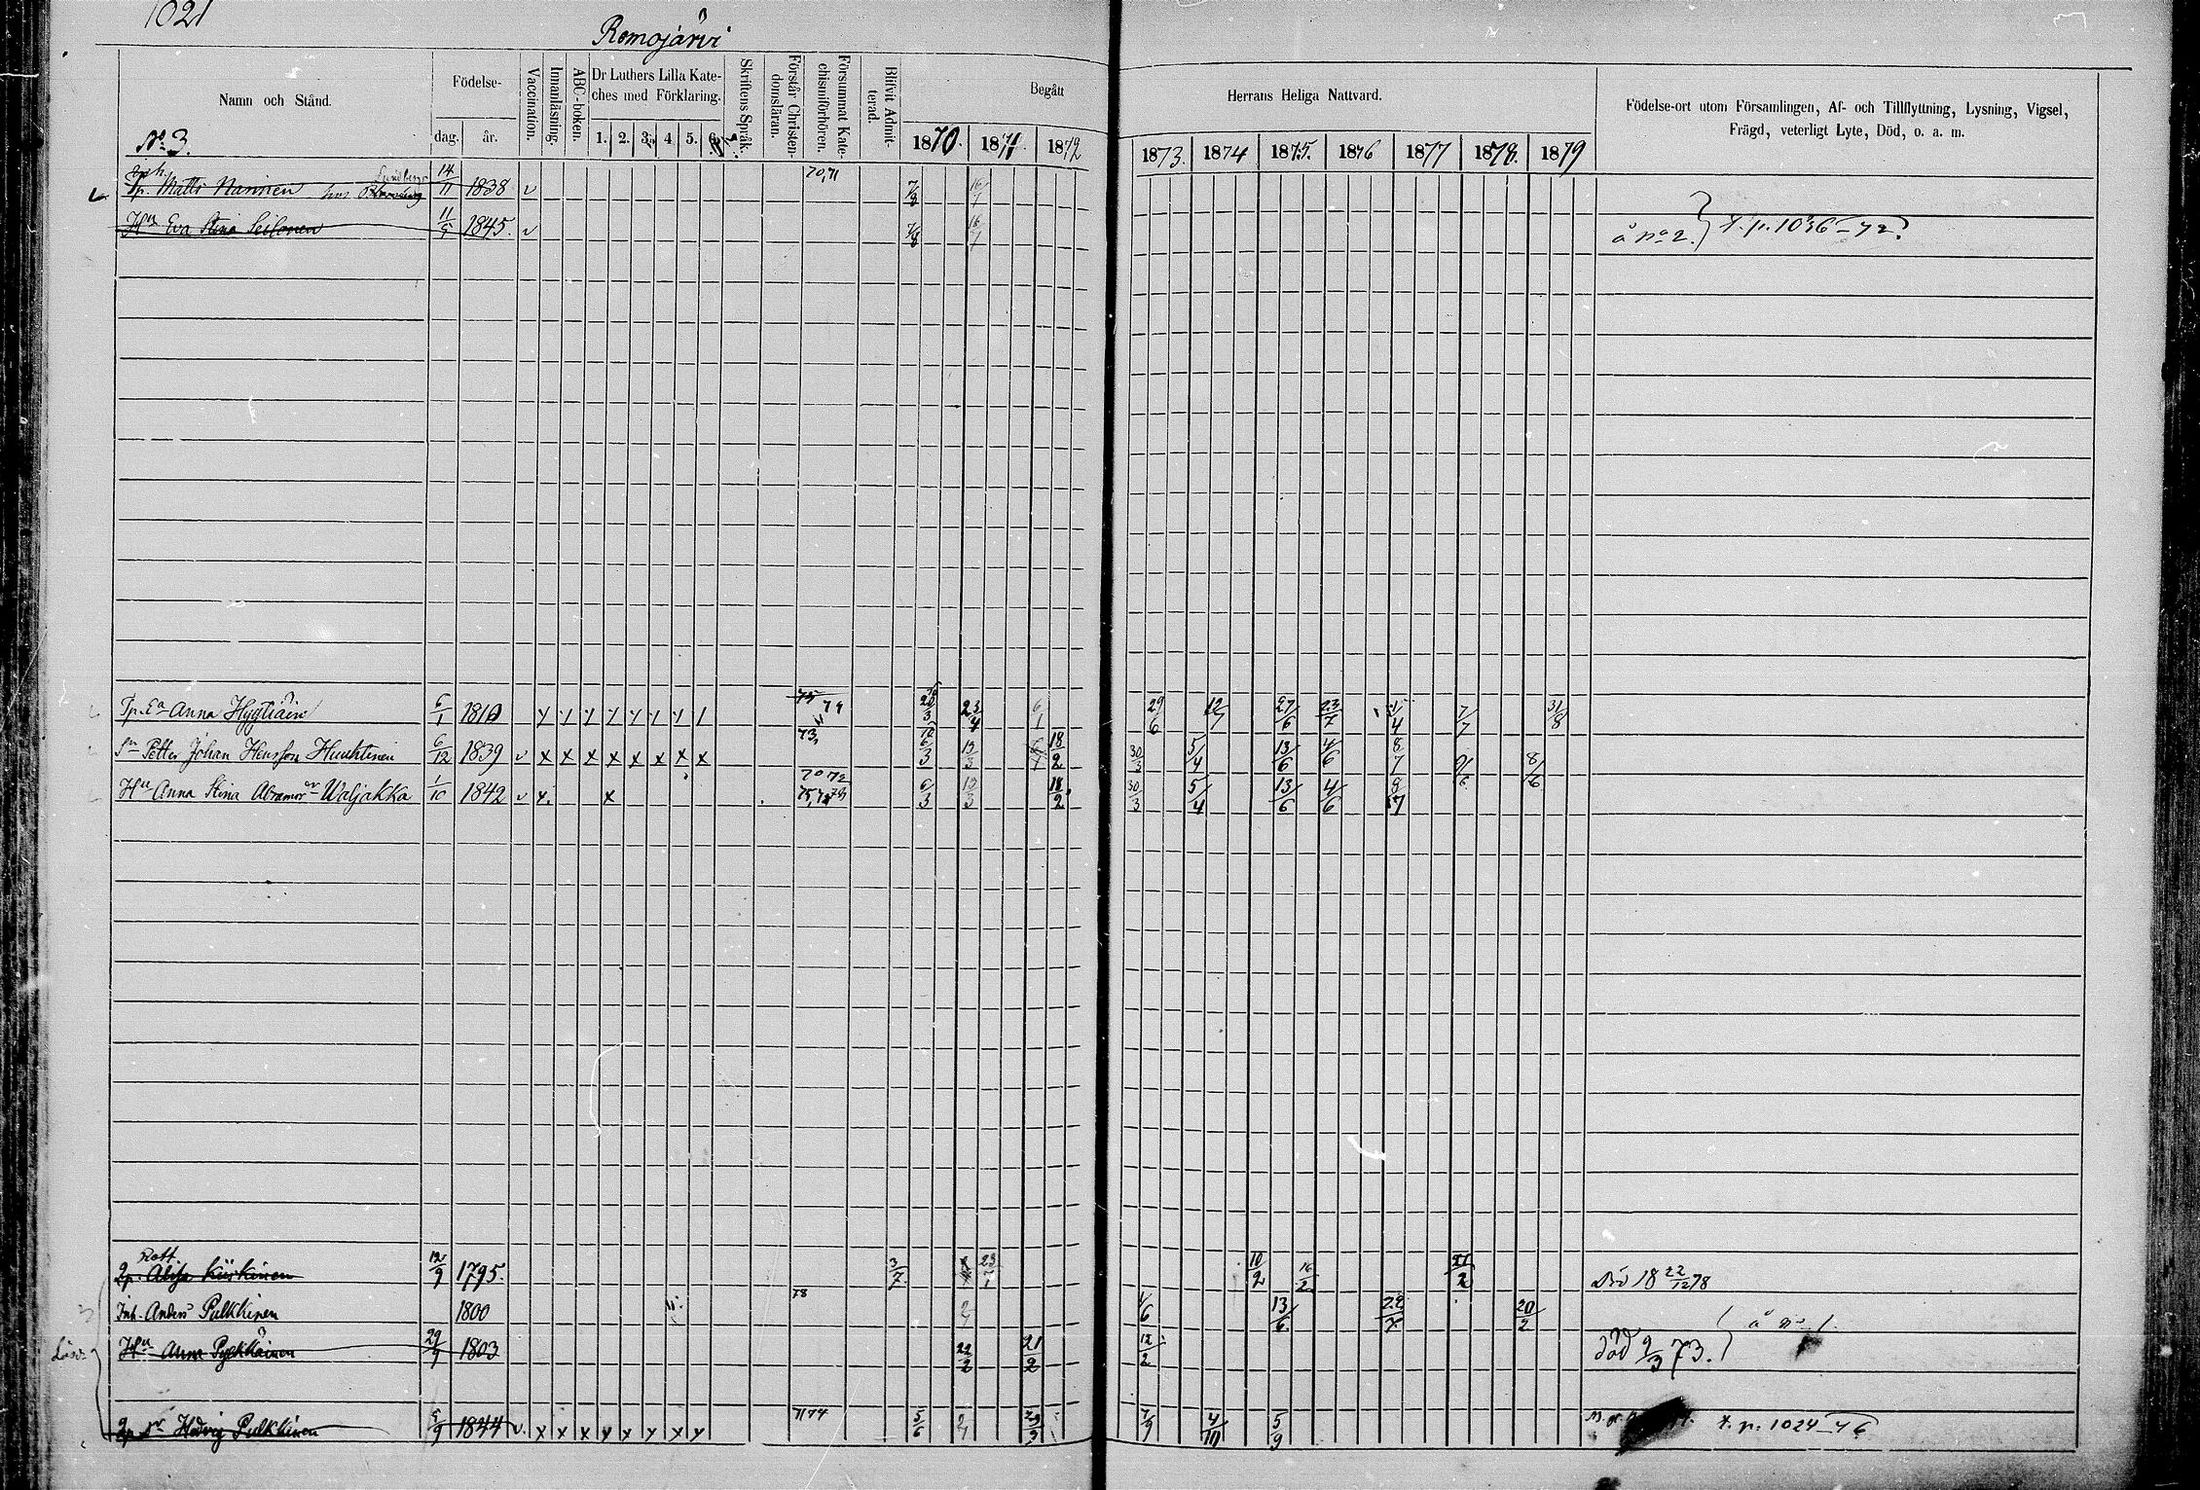 1021
Romojärvi
Namn och Stånd.
Födelse-
dag.
år.
Vaccination.
Innanläsning.
ABC-boken.
Dr Luthers Lilla Kate-
ches med Förklaring.
1. 2. 3. 4. 5. 6.
Skriftens Språk.
Förstår Christen-
domsläran.
Försummat Kate-
chismiförhören.
Blifvit Admit-
terad.
Begått
1870. 1871. 1872
Herrans Heliga Nattvard.
1873. 1874 1875. 1876 1877 1878. 1879
Födelse-ort utom Församlingen, Af- och Tillflyttning, Lysning, Vigsel,
Frägd, veterligt Lyte, Död, o. a. m.
No 3.
Matts Nannen hos 14/11 1838 v 70,71 7/8 16/7
Hu Eva Stina Seilonen 1845. v 7/8 16/7 å No 2. } t. p. 1036-72.
Tp. Ea Anna Hygtiäin 6/1 1810 75 79 23/4 6/1 29/6 12/7 27/6 23/7 7/7 31/8
Sn Petter Johan Hensson Huuhtinen 6/12 1839 v x x x x x x x x 73, 6/3 13/3 18/2 30/3 5/4 13/6 4/6 8/7 8/6
Hu Anna Stina Abramsdr Waljakka 1/10 1842 v x. x 70 72 6/3 13/3 18/2 30/3 5/4 13/6 4/6 8/7
Rott
Alisa Kiiskinen 1795. 3/7 23/1 10/2 16/2 21/2 Död 18 22/12 78
Inh. Anders Pulkkinen 1800 78 13/6 20/2 å No 1.
Hu Anna Pyykkäinen 1803 22/2 21/2 12/2 död 9/3 73.
Hedvig Pulkkinen 1844 v. x x x x x x x 71 74 5/6 4/10 5/9 t. p. 1024-76